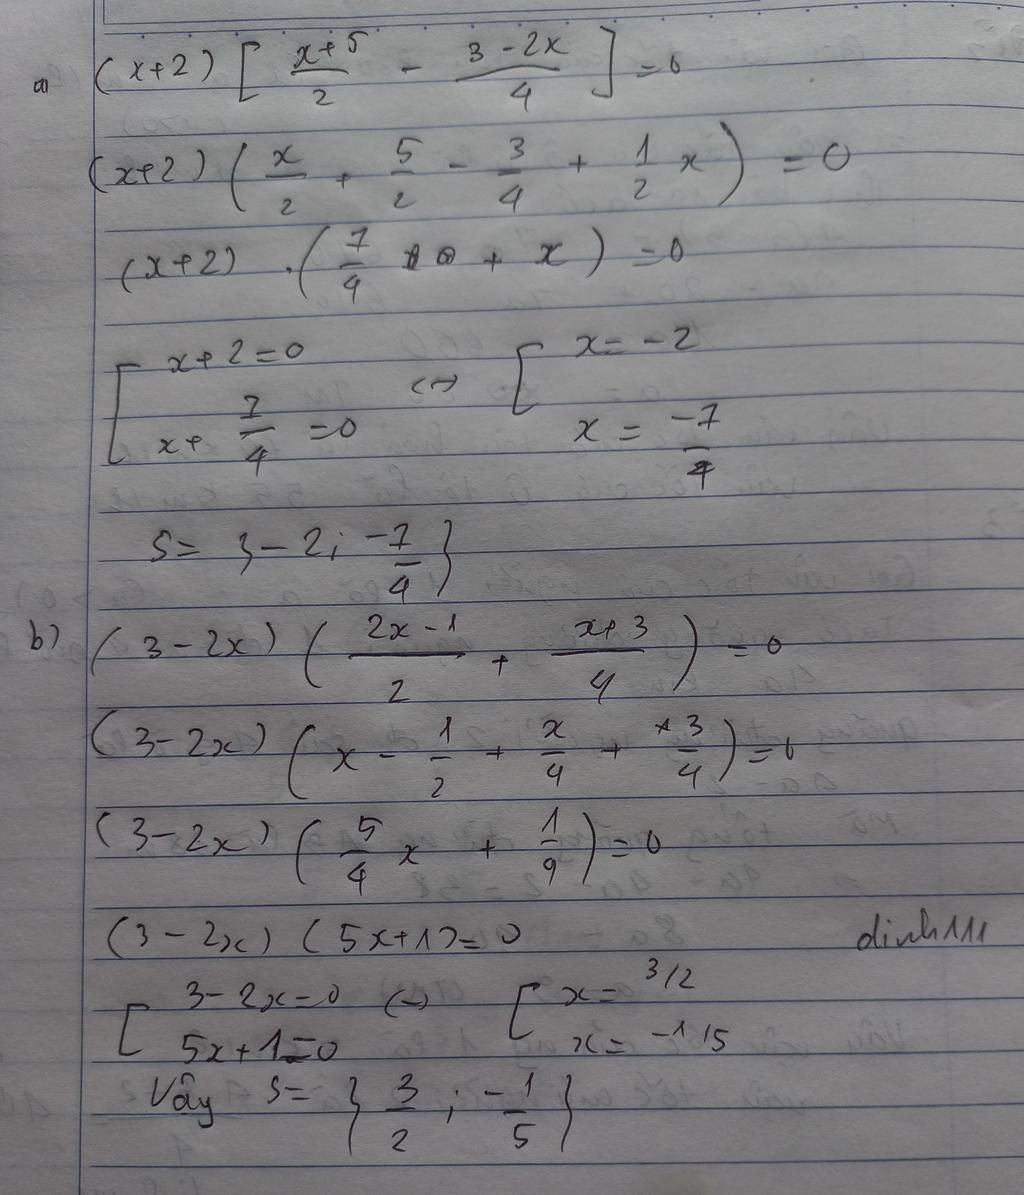 a) (x+2) [ (x+5)/2 - (3-2x)/4 ] = 0
(x+2) ( x/2 + 5/2 - 3/4 + 1/2 x ) = 0
(x+2) . ( 7/4 + x ) = 0
[ x+2=0 <-> [ x = -2
x + 7/4 = 0 x = -7/4
S = { -2; -7/4 }
b) (3-2x) ( (2x-1)/2 + (x+3)/4 ) = 0
(3-2x) ( x - 1/2 + x/4 + 3/4 ) = 0
(3-2x) ( 5/4 x + 1/4 ) = 0
(3-2x) (5x+1) = 0 dinh111
[ 3-2x=0 <-> [ x = 3/2
5x+1=0 x = -1/5
Vậy S = { 3/2 ; -1/5 }